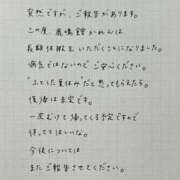 突然ですが、ご報告があります。
この度、鹿嶋館かれんは
長期休暇をいただくことになりました。
病気ではないのでご安心ください。
"ふてした夏休み"だと思ってもらえたら。
復帰は未定です。
一受むけて帰ってくる予定ですので
待っててほしいな。
今後については
またご報告させてください。